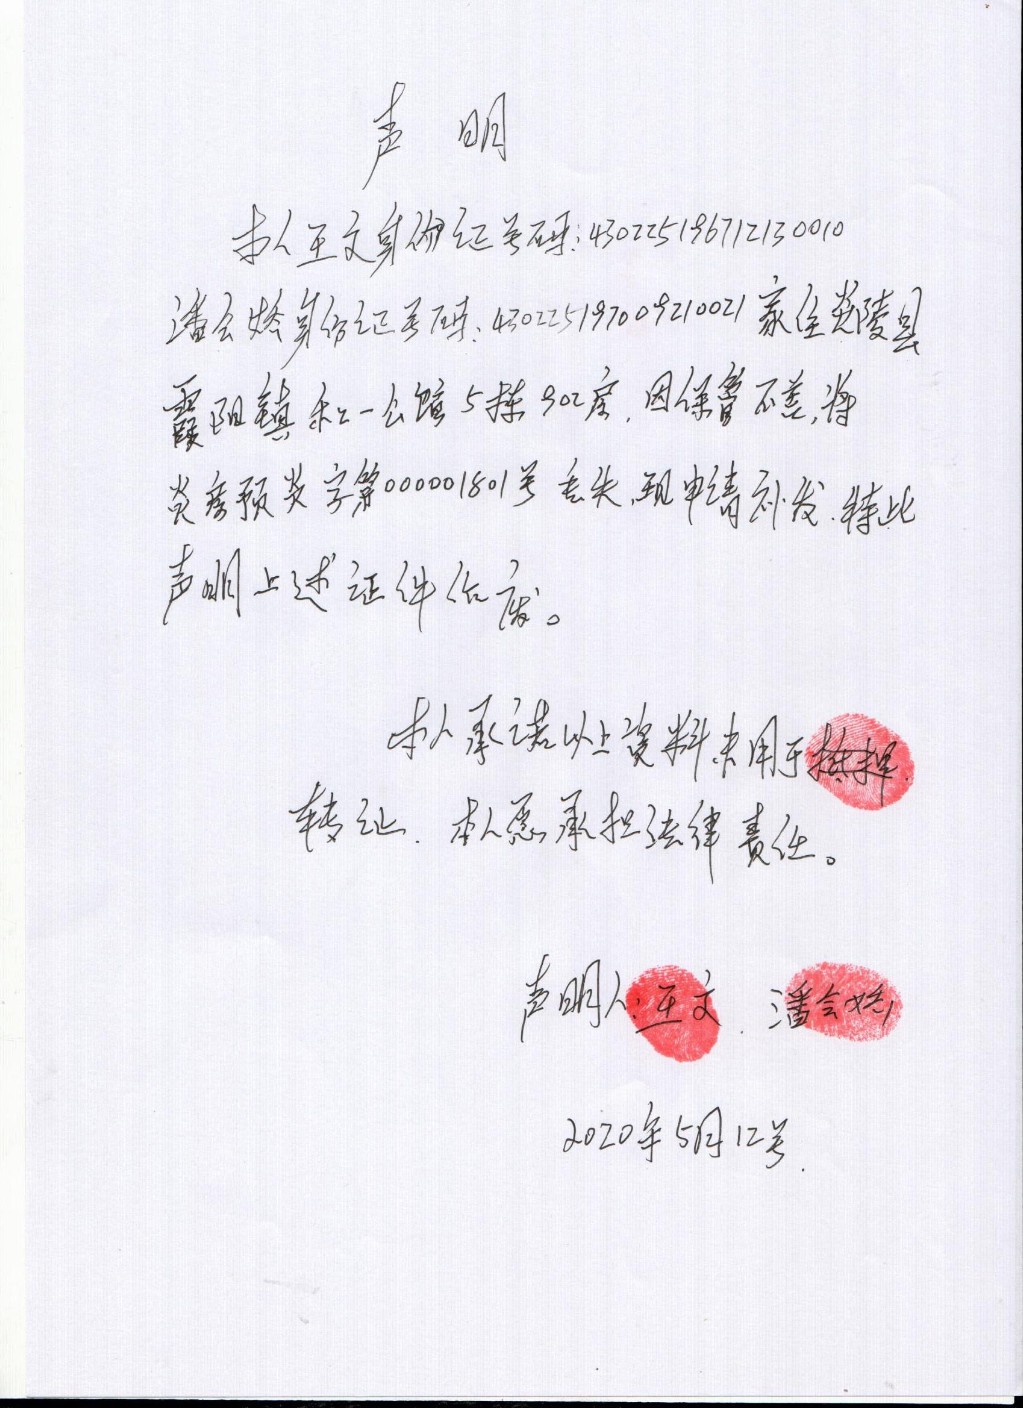 声 明
本人王文身份证号码:430225196712130010
潘会娇身份证号码:430225197009210021家住炎陵县
霞阳镇和一公馆5栋902房,因保管不善,将
炎房预炎字第000001801号丢失,现申请补发.特此
声明上述证件作废。
本人承诺以上资料未用于抵押.
转让.本人愿承担法律责任。
声明人:王文.潘会娇
2020年5月12号.